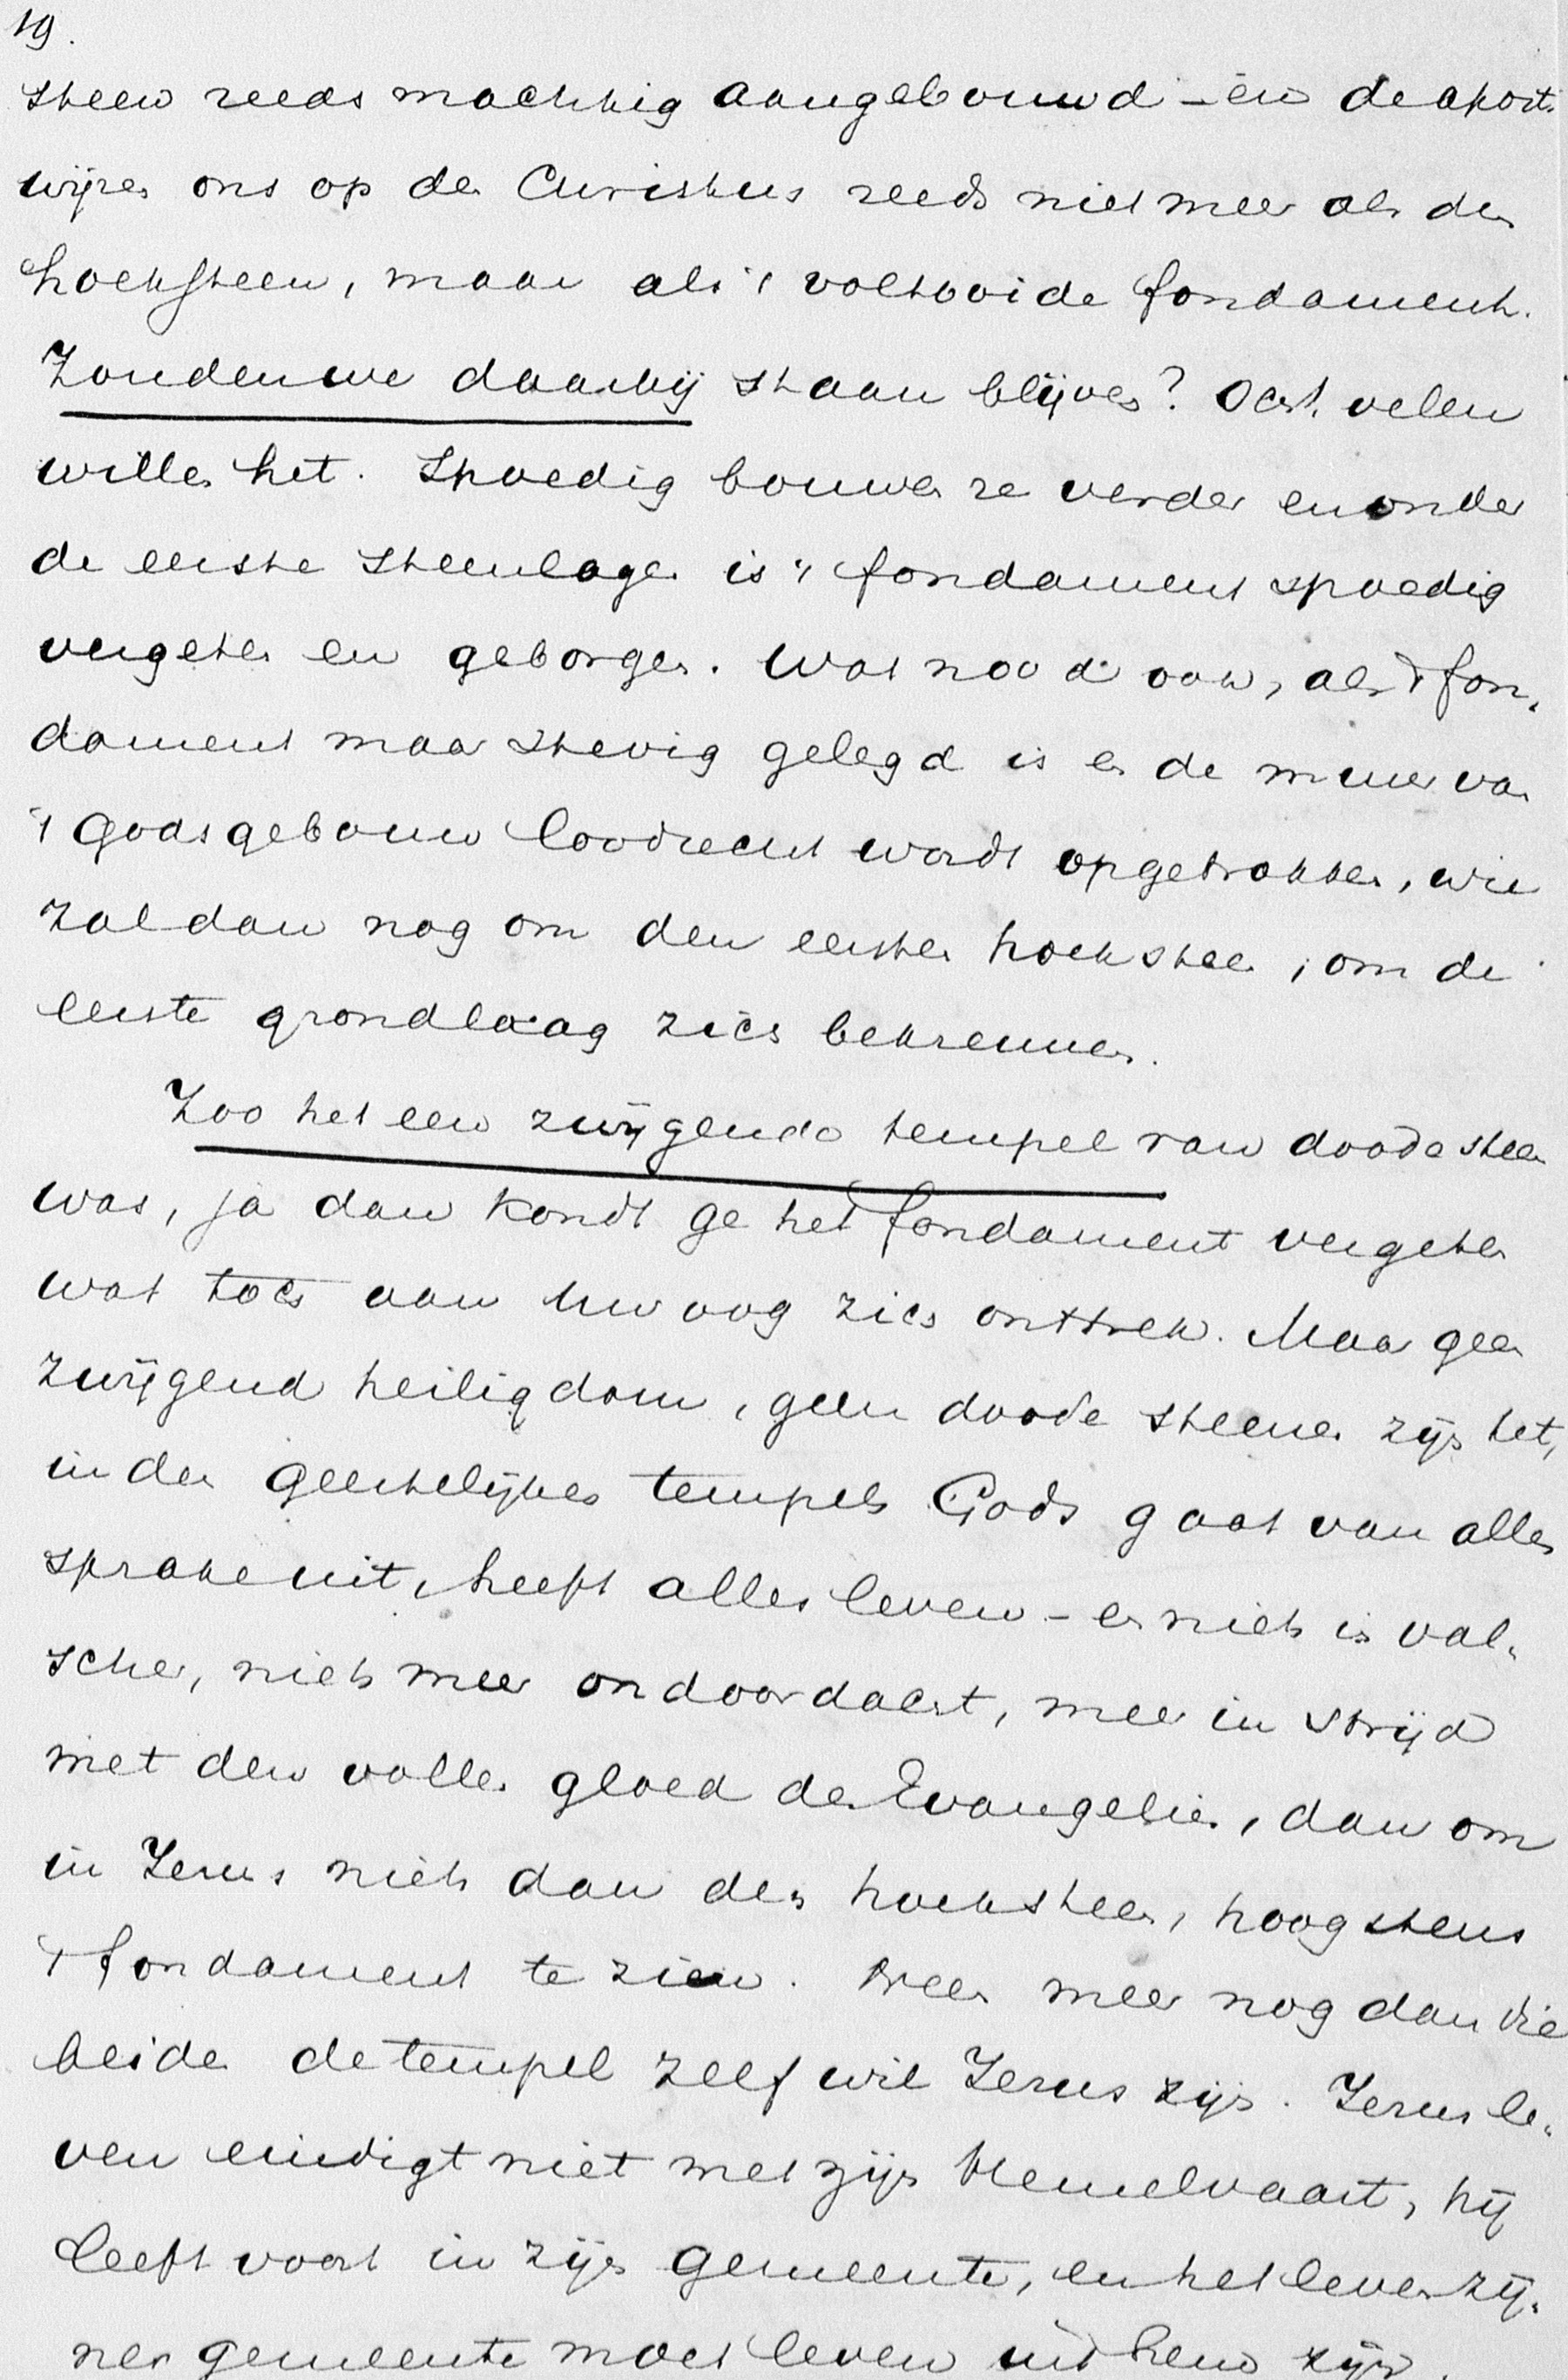 19.
steen reeds machtig aangebouwd – en de apost.
wijzen ons op den Christus reeds niet meer als den
hoeksteen, maar als 't voltooide fondament.
Zouden we daarbij staan blijven? Och, velen
willen het. Spoedig bouwen ze verder en onder
de eerste steenlagen is 't fondament spoedig
vergeten en geborgen. Wat nood ook, als 't fon-
dament maar stevig gelegd is en de muur van
't Godsgebouw loodrecht wordt opgetrokken, wie
zal dan nog om den eersten hoeksteen, om de
eerste grondlaag zich bekreunen.
Zoo het een zwijgende tempel van doode steen
was, ja dan kondt ge het fondament vergeten
wat toch aan uw oog zich onttrek. Maar geen
zwijgend heiligdom, geen doode steenen zijn het,
in den geestelijken tempels Gods gaat van alles
sprake uit, heeft alles leven – en niets is val-
scher, niets meer ondoordacht, meer in strijd
met den vollen gloed des Evangelies, dan om
in Jezus niets dan den hoeksteen, hoogstens
't fondament te zien. Neen meer nog dan die
beide de tempel zelf wil Jezus zijn. Jezus le-
ven eindigt niet met zijn Hemelvaart, hij
leeft voort in zijn gemeente, en het leven zij-
ner gemeente moet leven uit hem zijn.